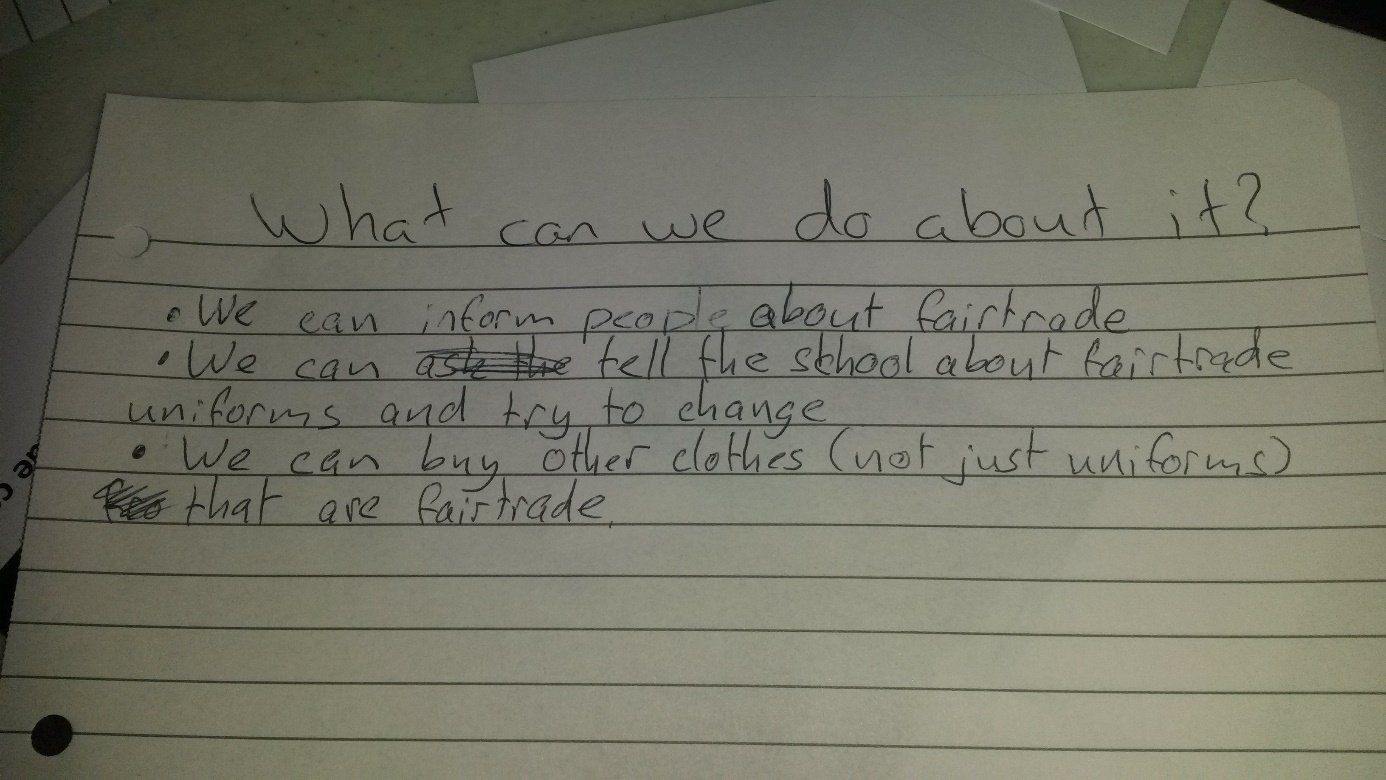 What can we do about it?
• We can inform people about fairtrade
• We can ask the tell the school about fairtrade
uniforms and try to change
• We can buy other clothes (not just uniforms)
that are fairtrade.